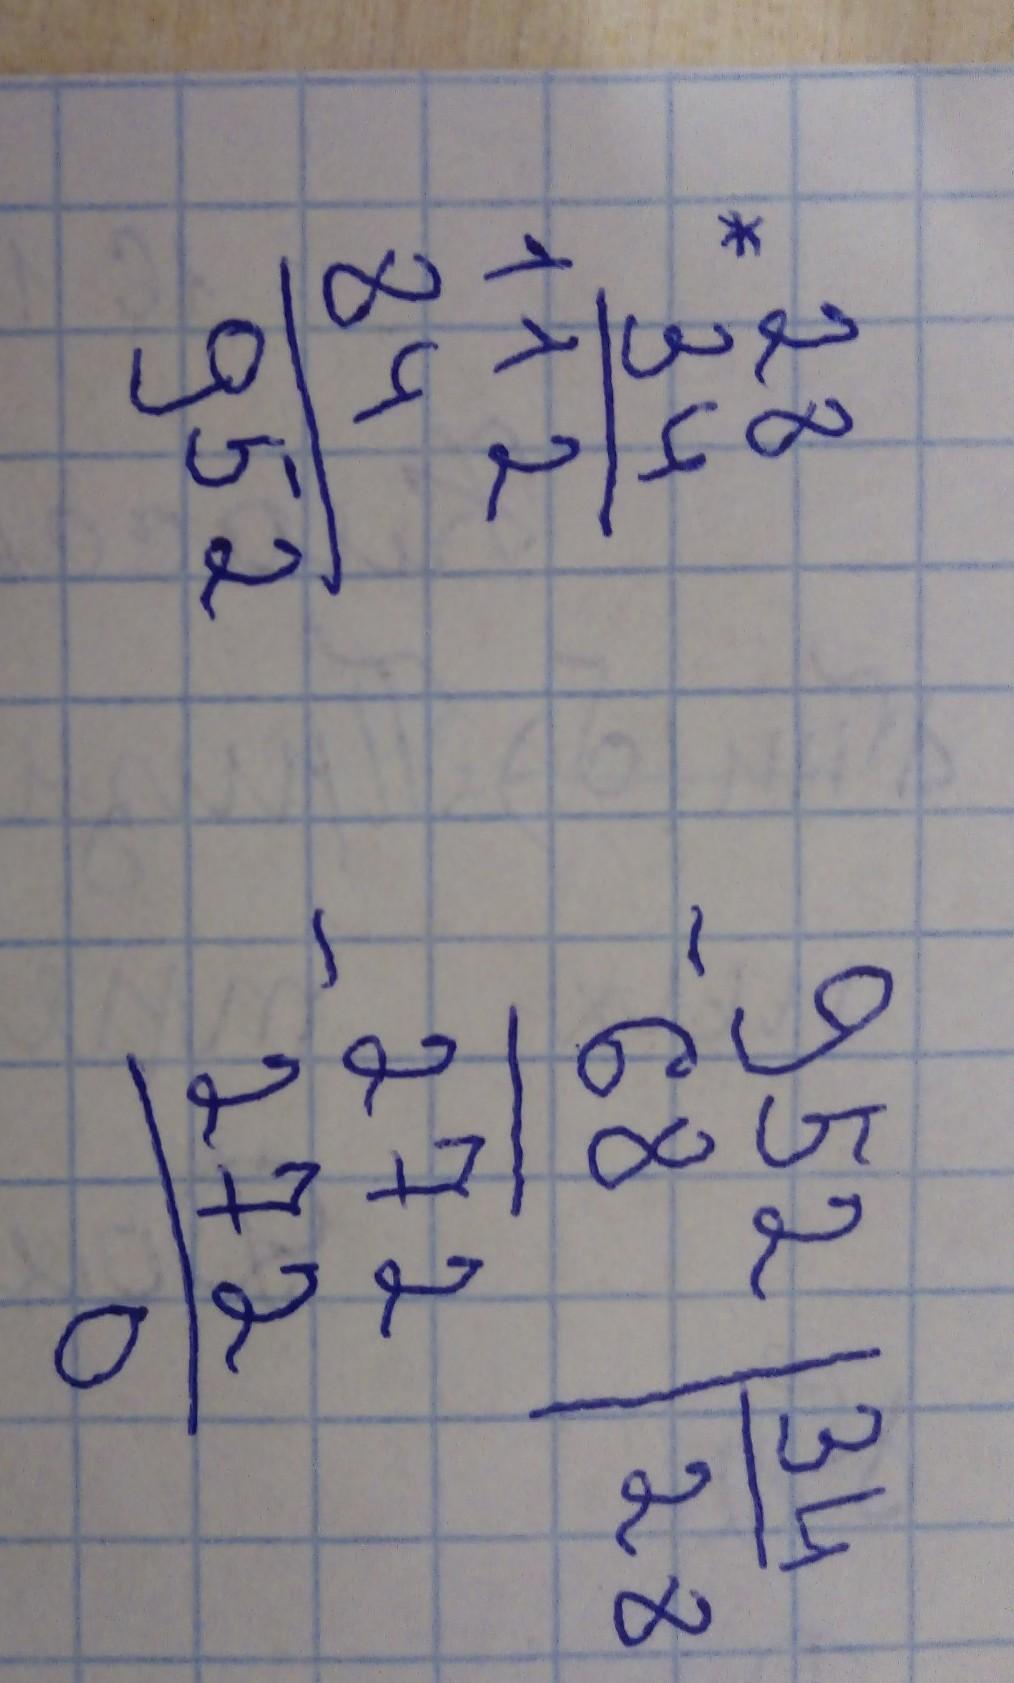 * 28
34
112
84
952
- 952 34
68 28
- 272
272
0